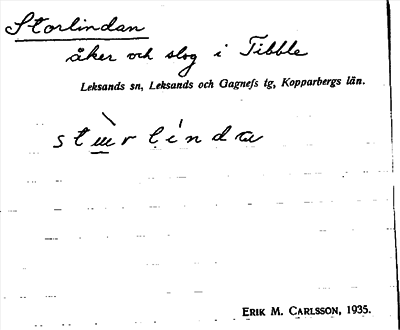 Storlindan
åker och slog i Tibble
Leksands sn, Leksands och Gagnefs tg, Kopparbergs län.
ERIK M. CARLSSON, 1935.